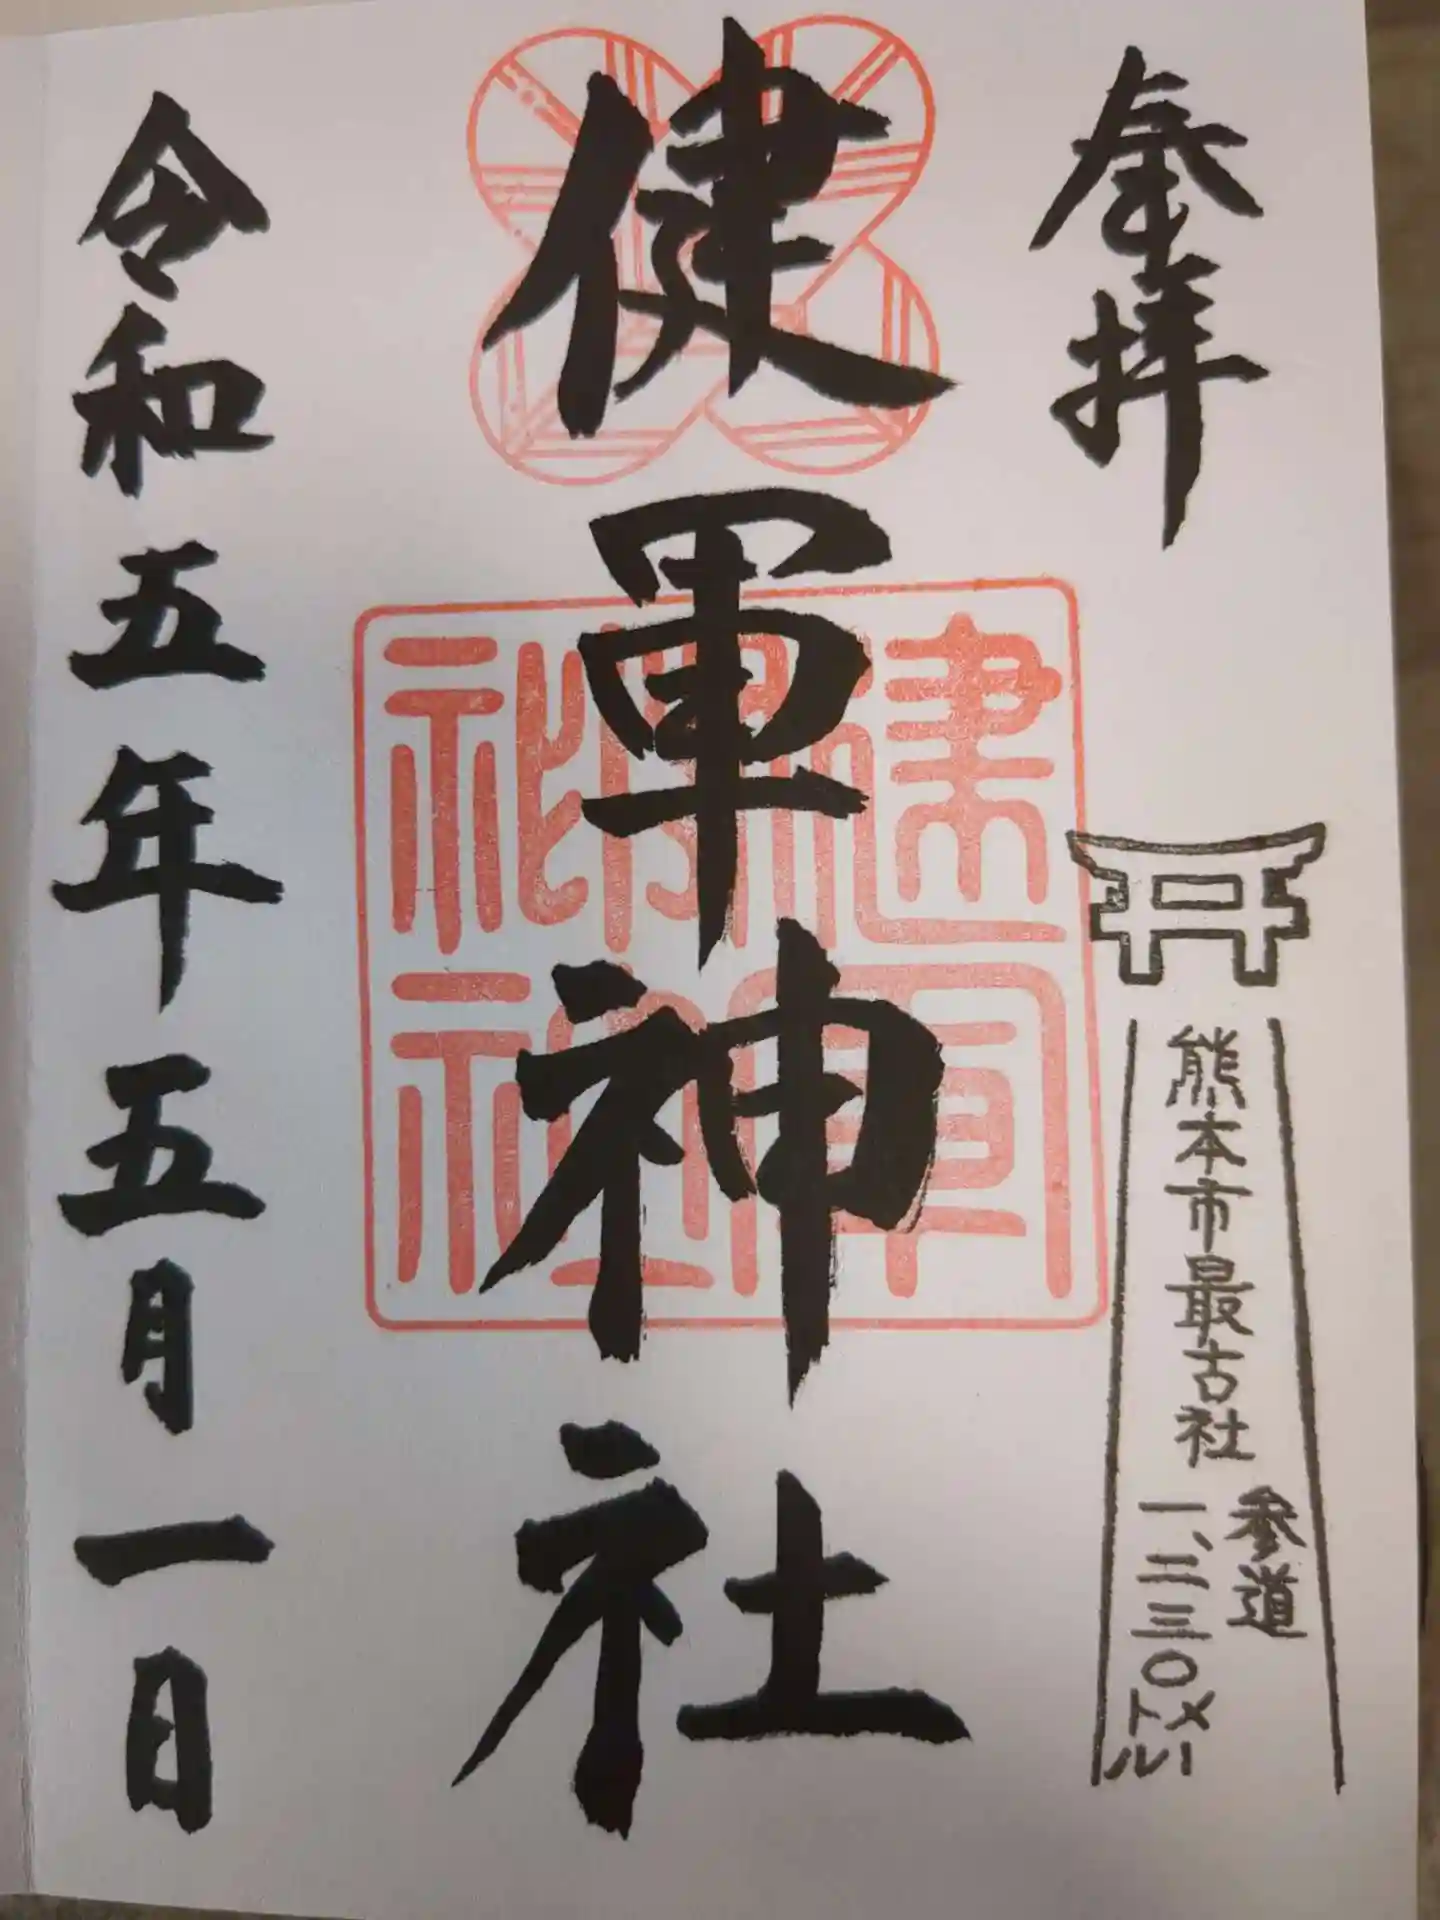 参拝
熊本市最古社
参道
一、二三〇メートル
健軍神社
健軍
神社
令和五年五月一日